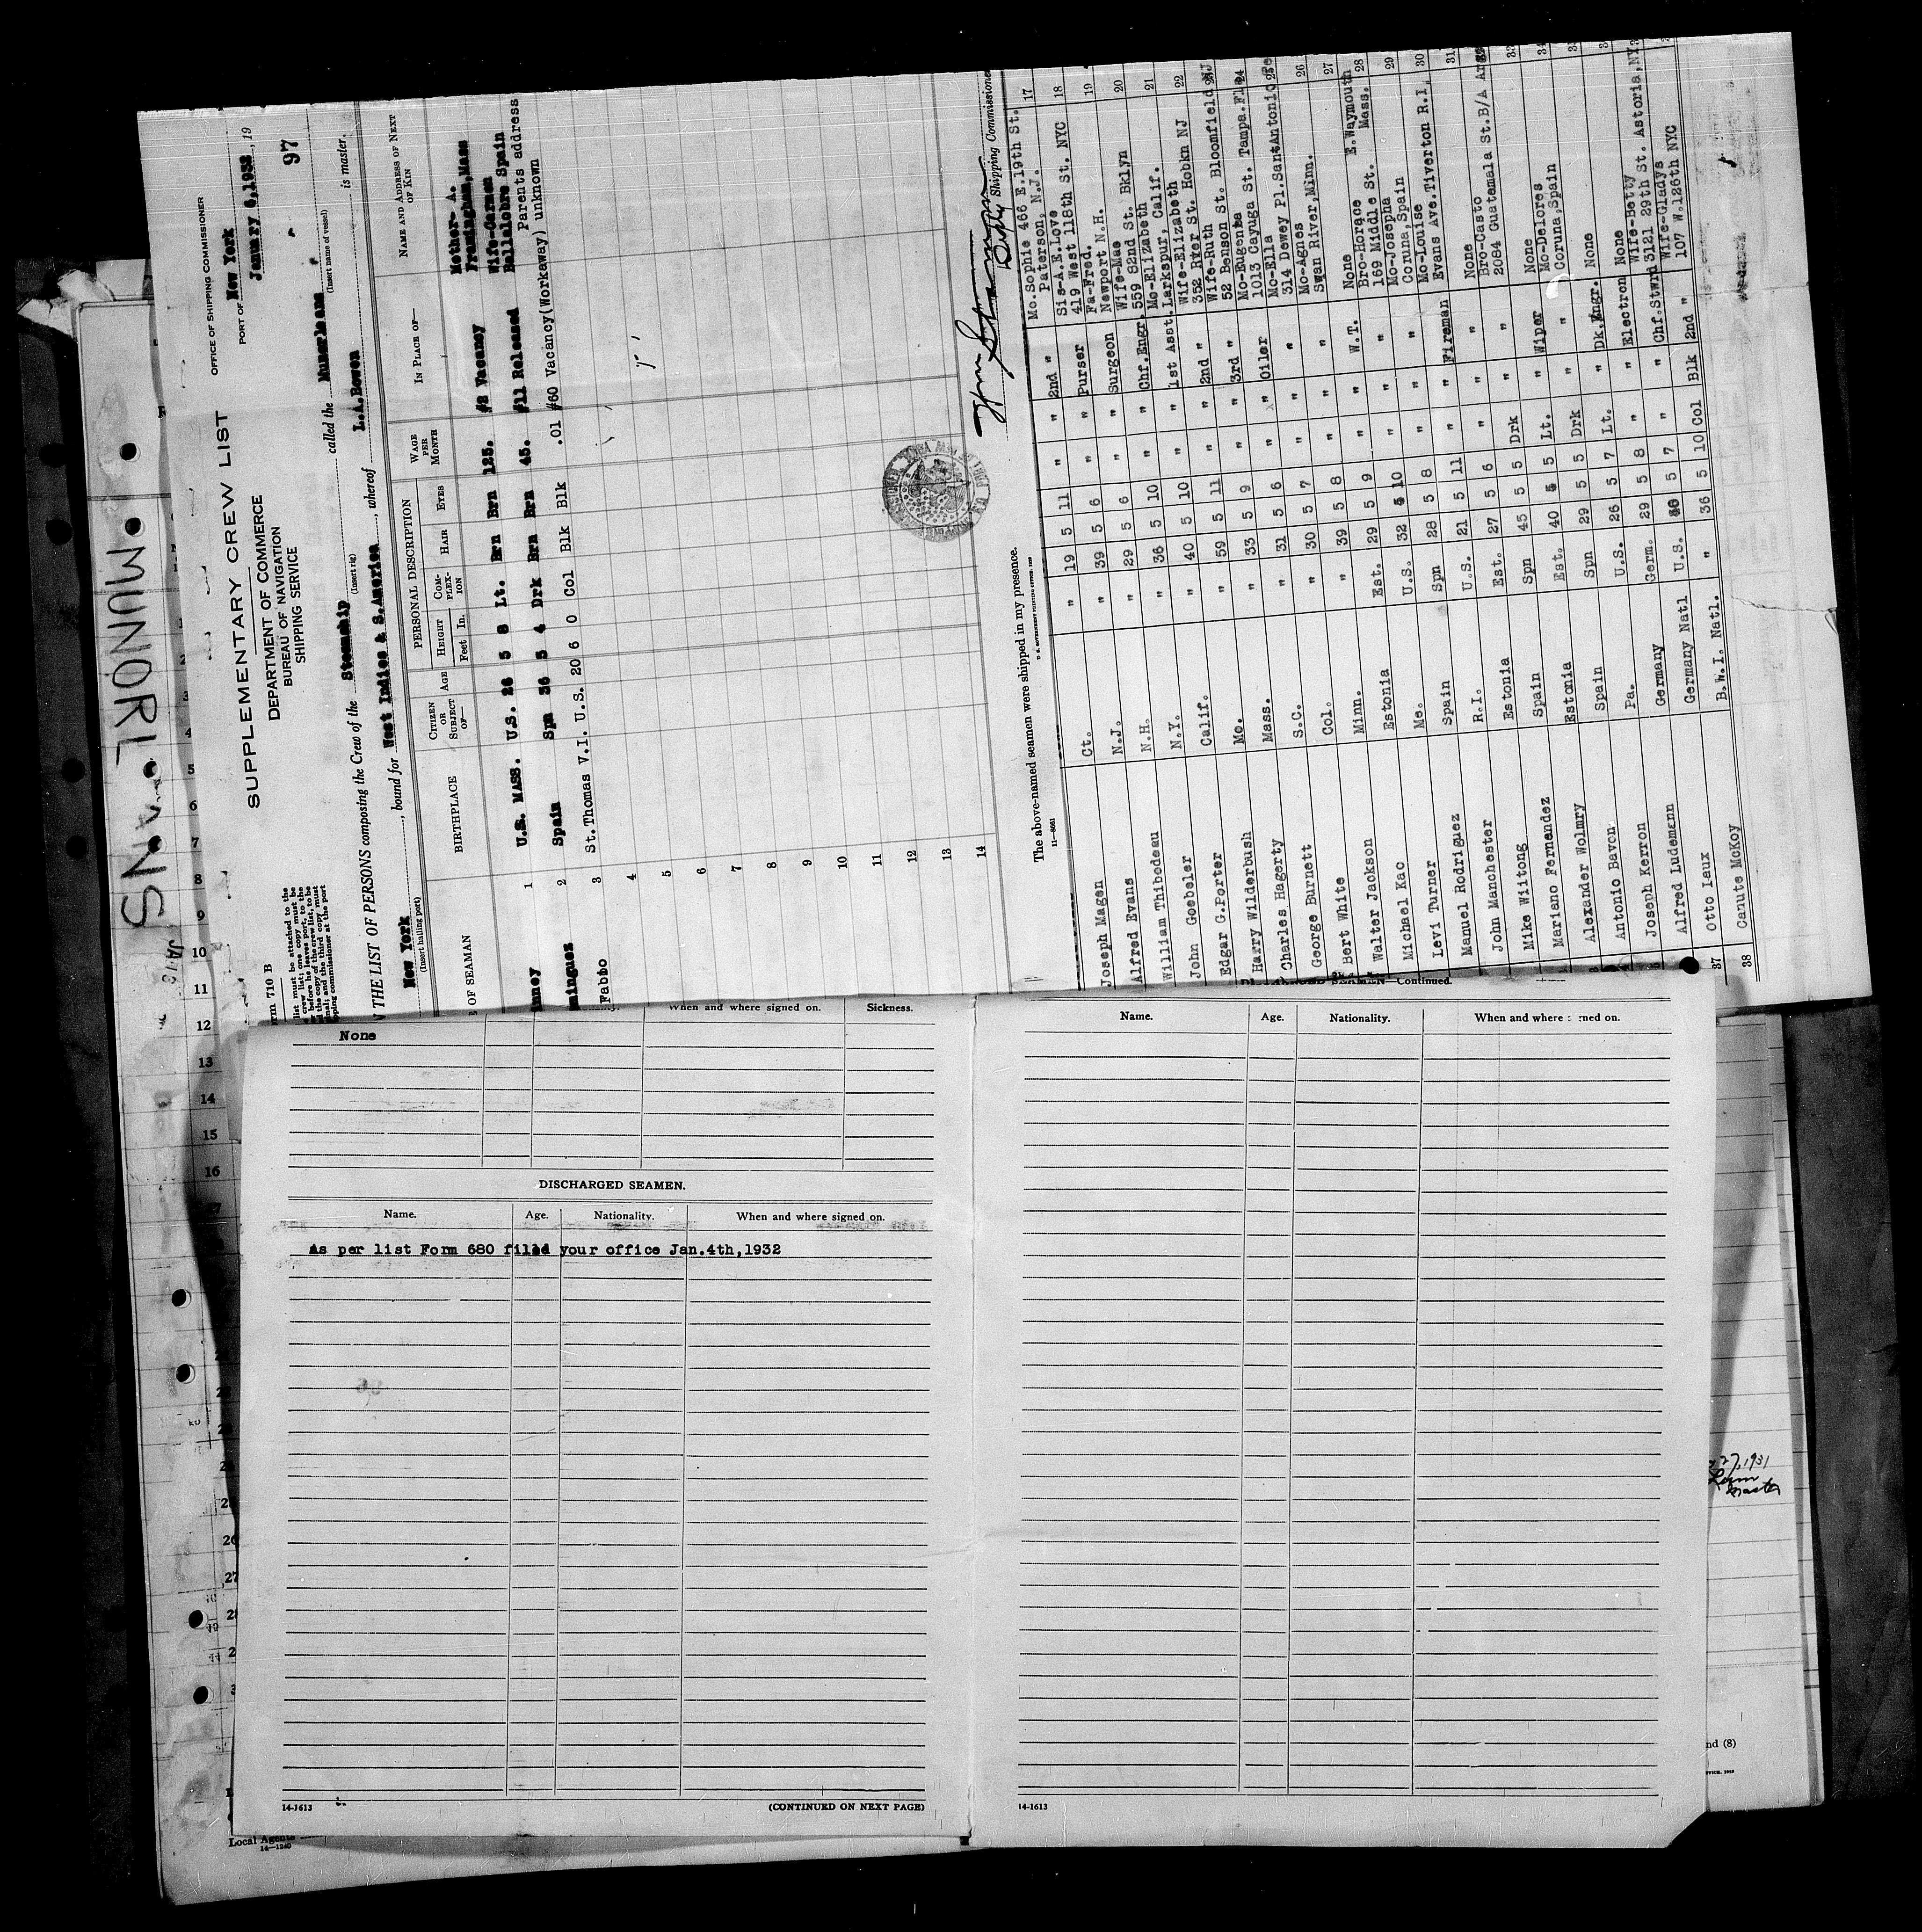 MUNORLEANS
OFFICE OF SHIPPING COMMISSIONER
PORT OF New York
January 6, 1932, 19
97
SUPPLEMENTARY CREW LIST
DEPARTMENT OF COMMERCE
BUREAU OF NAVIGATION
SHIPPING SERVICE
710 B
list must be attached to the
crew list; one copy must be
before she leaves port, to the
the copy of the crew list, to be
and the third copy must
shipping commissioner at the port
THE LIST OF PERSONS composing the Crew of the Steamship called the Munorleans is master.
(Insert rig) (Insert name of vessel)
New York, bound for West Indies & S.America, whereof L.A.Bowen
(Insert hailing port)
OF SEAMAN
BIRTHPLACE
CITIZEN OR SUBJECT OF—
AGE
PERSONAL DESCRIPTION
HEIGHT
Feet In.
COM-PLEX-ION
HAIR
EYES
WAGE PER MONTH
IN PLACE OF—
NAME AND ADDRESS OF NEXT OF KIN
1 U.S. MASS. U.S. 26 5 8 Lt. Brn Brn 125. #2 Vacancy Mother- A.
Framingham,Mass
2 Spain Spn 36 5 4 Drk Brn Brn 45. #11 Released Wife-Carmen
Ballalobre Spain
Fabbo 3 St.Thomas V.I. U.S. 20 6 0 Col Blk Blk .01 #60 Vacancy(Workaway) Parents address
unknown
4
5
6
7
8
9
10
11
12
13
14
The above-named seamen were shipped in my presence.
11—8061
Shipping Commissioner
Mo.Sophie 466 E.19th St. 17
Paterson, N.J.
Joseph Magen Ct. " 19 5 11 " " 2nd " Sis-A.E.Love 18
419 West 118th St. NYC
Alfred Evans N.J. " 39 5 6 " " Purser Fa-Fred. 19
Newport N.H.
William Thibodeau N.H. " 29 5 6 " " Surgeon Wife-Mae 20
559 82nd St. Bklyn
John Goebeler N.Y. " 36 5 10 " " Chf.Engr. Mo-Elizabeth 21
Larkspur, Calif.
Edgar G.Porter Calif. " 40 5 10 " " 1st Asst. Wife-Elizabeth 22
352 River St. Hobkn NJ
Harry Wilderbush Mo. " 59 5 11 " " 2nd " Wife-Ruth
52 Benson St. Bloomfield NJ
Charles Hagerty Mass. " 33 5 9 " " 3rd " Mo-Eugenia 24
1013 Cayuga St. Tampa.Fla
George Burnett S.C. " 31 5 6 " " Oiler Mo-Ella
314 Dewey Pl.SantAntonio
Bert White Col. " 30 5 7 " " " Mo-Agnes 26
Swan River,Minn.
Walter Jackson Minn. " 39 5 8 " " " None 27
Michael Kac Estonia Est. 29 5 9 " " W.T. Bro-Horace E.Waymouth 28
169 Middle St. Mass.
Levi Turner Me. U.S. 32 5 10 " " " Mo-Josepha 29
Coruna,Spain
Manuel Rodriguez Spain Spn 28 5 8 " " " Mo-Louise 30
Evans Ave.Tiverton R.I.
John Manchester R.I. U.S. 21 5 11 " " Fireman None 31
Mike Wiitong Estonia Est. 27 5 6 " " " Bro-Casto
2084 Guatemala St.B/A Arg
Mariano Fernendez Spain Spn 45 5 5 Drk " " None
Alexander Wolmry Estonia Est. 40 5 5 Lt. " Wiper Mo-Delores
Coruna,Spain
Antonio Bavon Spain Spn 29 5 5 Drk " " None
Joseph Kerron Pa. U.S. 26 5 7 Lt. " Dk.Engr. None
Alfred Ludemann Germany Germ. 29 5 8 " " Electron Wife-Betty
3121 29th St. Astoria,NY
Otto Laux Germany Natl U.S. 5 7 " " Chf.Stwrd Wife-Gladys
107 W.126th NYC
37
Canute McKoy B.W.I. Natl. " 36 5 10 Col Blk 2nd "
38
When and where signed on. Sickness.
None
DISCHARGED SEAMEN.
Name. Age. Nationality. When and where signed on.
As per list Form 680 filed your office Jan.4th,1932
14-1613 (CONTINUED ON NEXT PAGE)
SEAMEN—Continued.
Name. Age. Nationality. When and where signed on.
14-1613
27, 1931
Master
nd (8)
Local Agents
14—1240